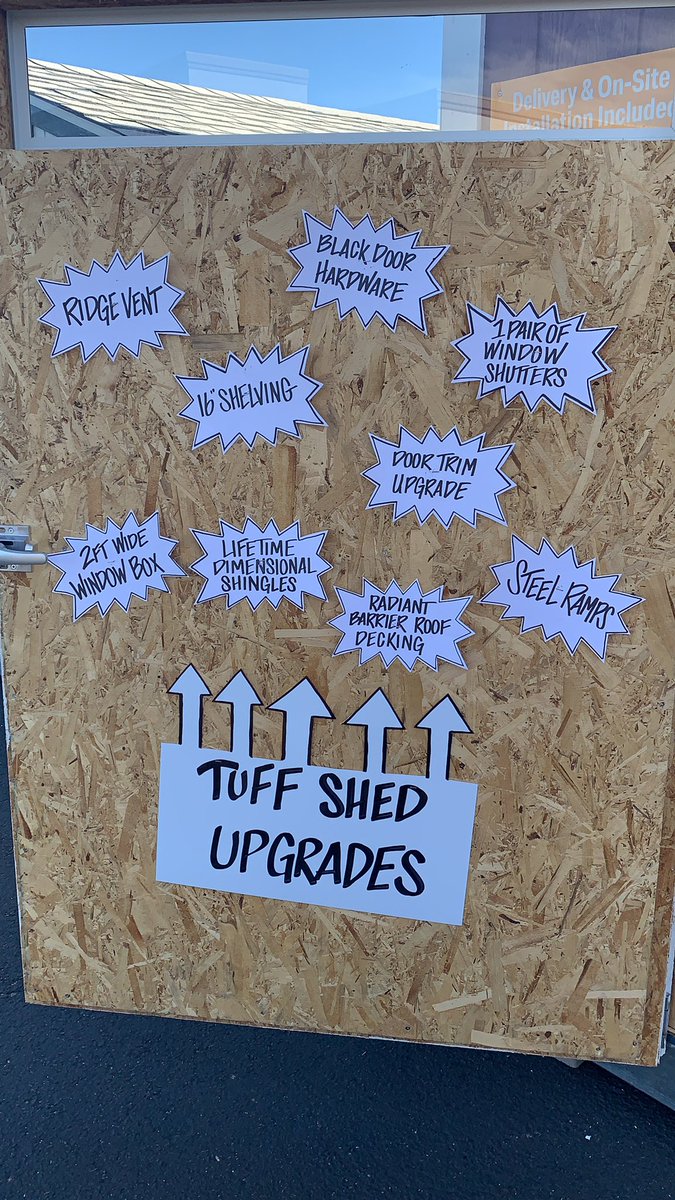 Delivery & On-Site
Installation Included
BLACK DOOR
HARDWARE
RIDGE VENT
1 PAIR OF
WINDOW
SHUTTERS
16" SHELVING
DOOR TRIM
UPGRADE
2FT WIDE
WINDOW BOX
LIFETIME
DIMENSIONAL
SHINGLES
STEEL RAMPS
RADIANT
BARRIER ROOF
DECKING
TUFF SHED
UPGRADES